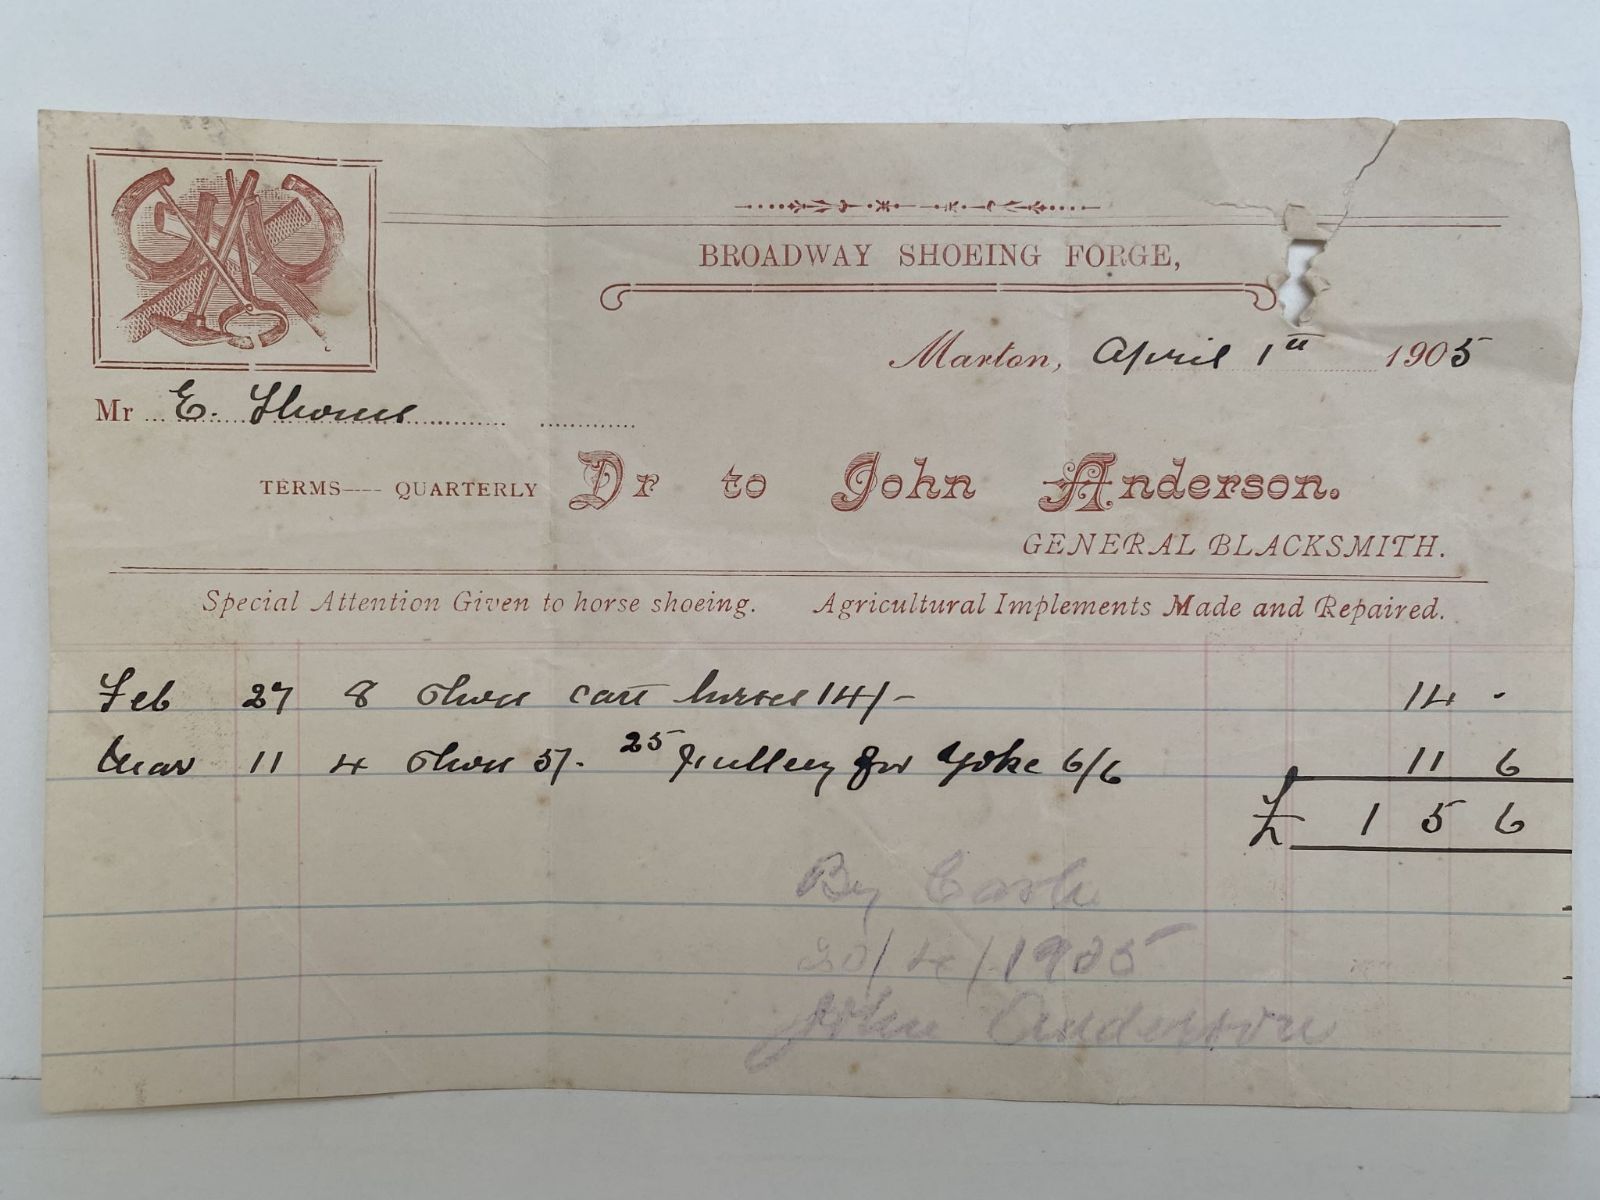 BROADWAY SHOEING FORGE,
Marton, April 1st 1905
Mr E. Thomas
TERMS—— QUARTERLY Dr to John Anderson.
GENERAL BLACKSMITH.
Special Attention Given to horse shoeing. Agricultural Implements Made and Repaired.
Feb 27 8 Shoes cart horses 14/- 14 -
Mar 11 4 Shoes 5/- 25 pulley for Yoke 6/6 11 6
£ 1 5 6
By Cash
20/4/1905
John Anderson